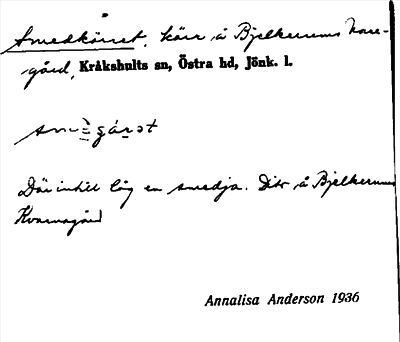 Smedkärret, kärr å Bjelkerums
gård, Kråkshults sn, Östra hd, Jönk. l.
Därintill låg en smedja. Ditr å Bjelkerums
Kvarnagård
Annalisa Anderson 1936